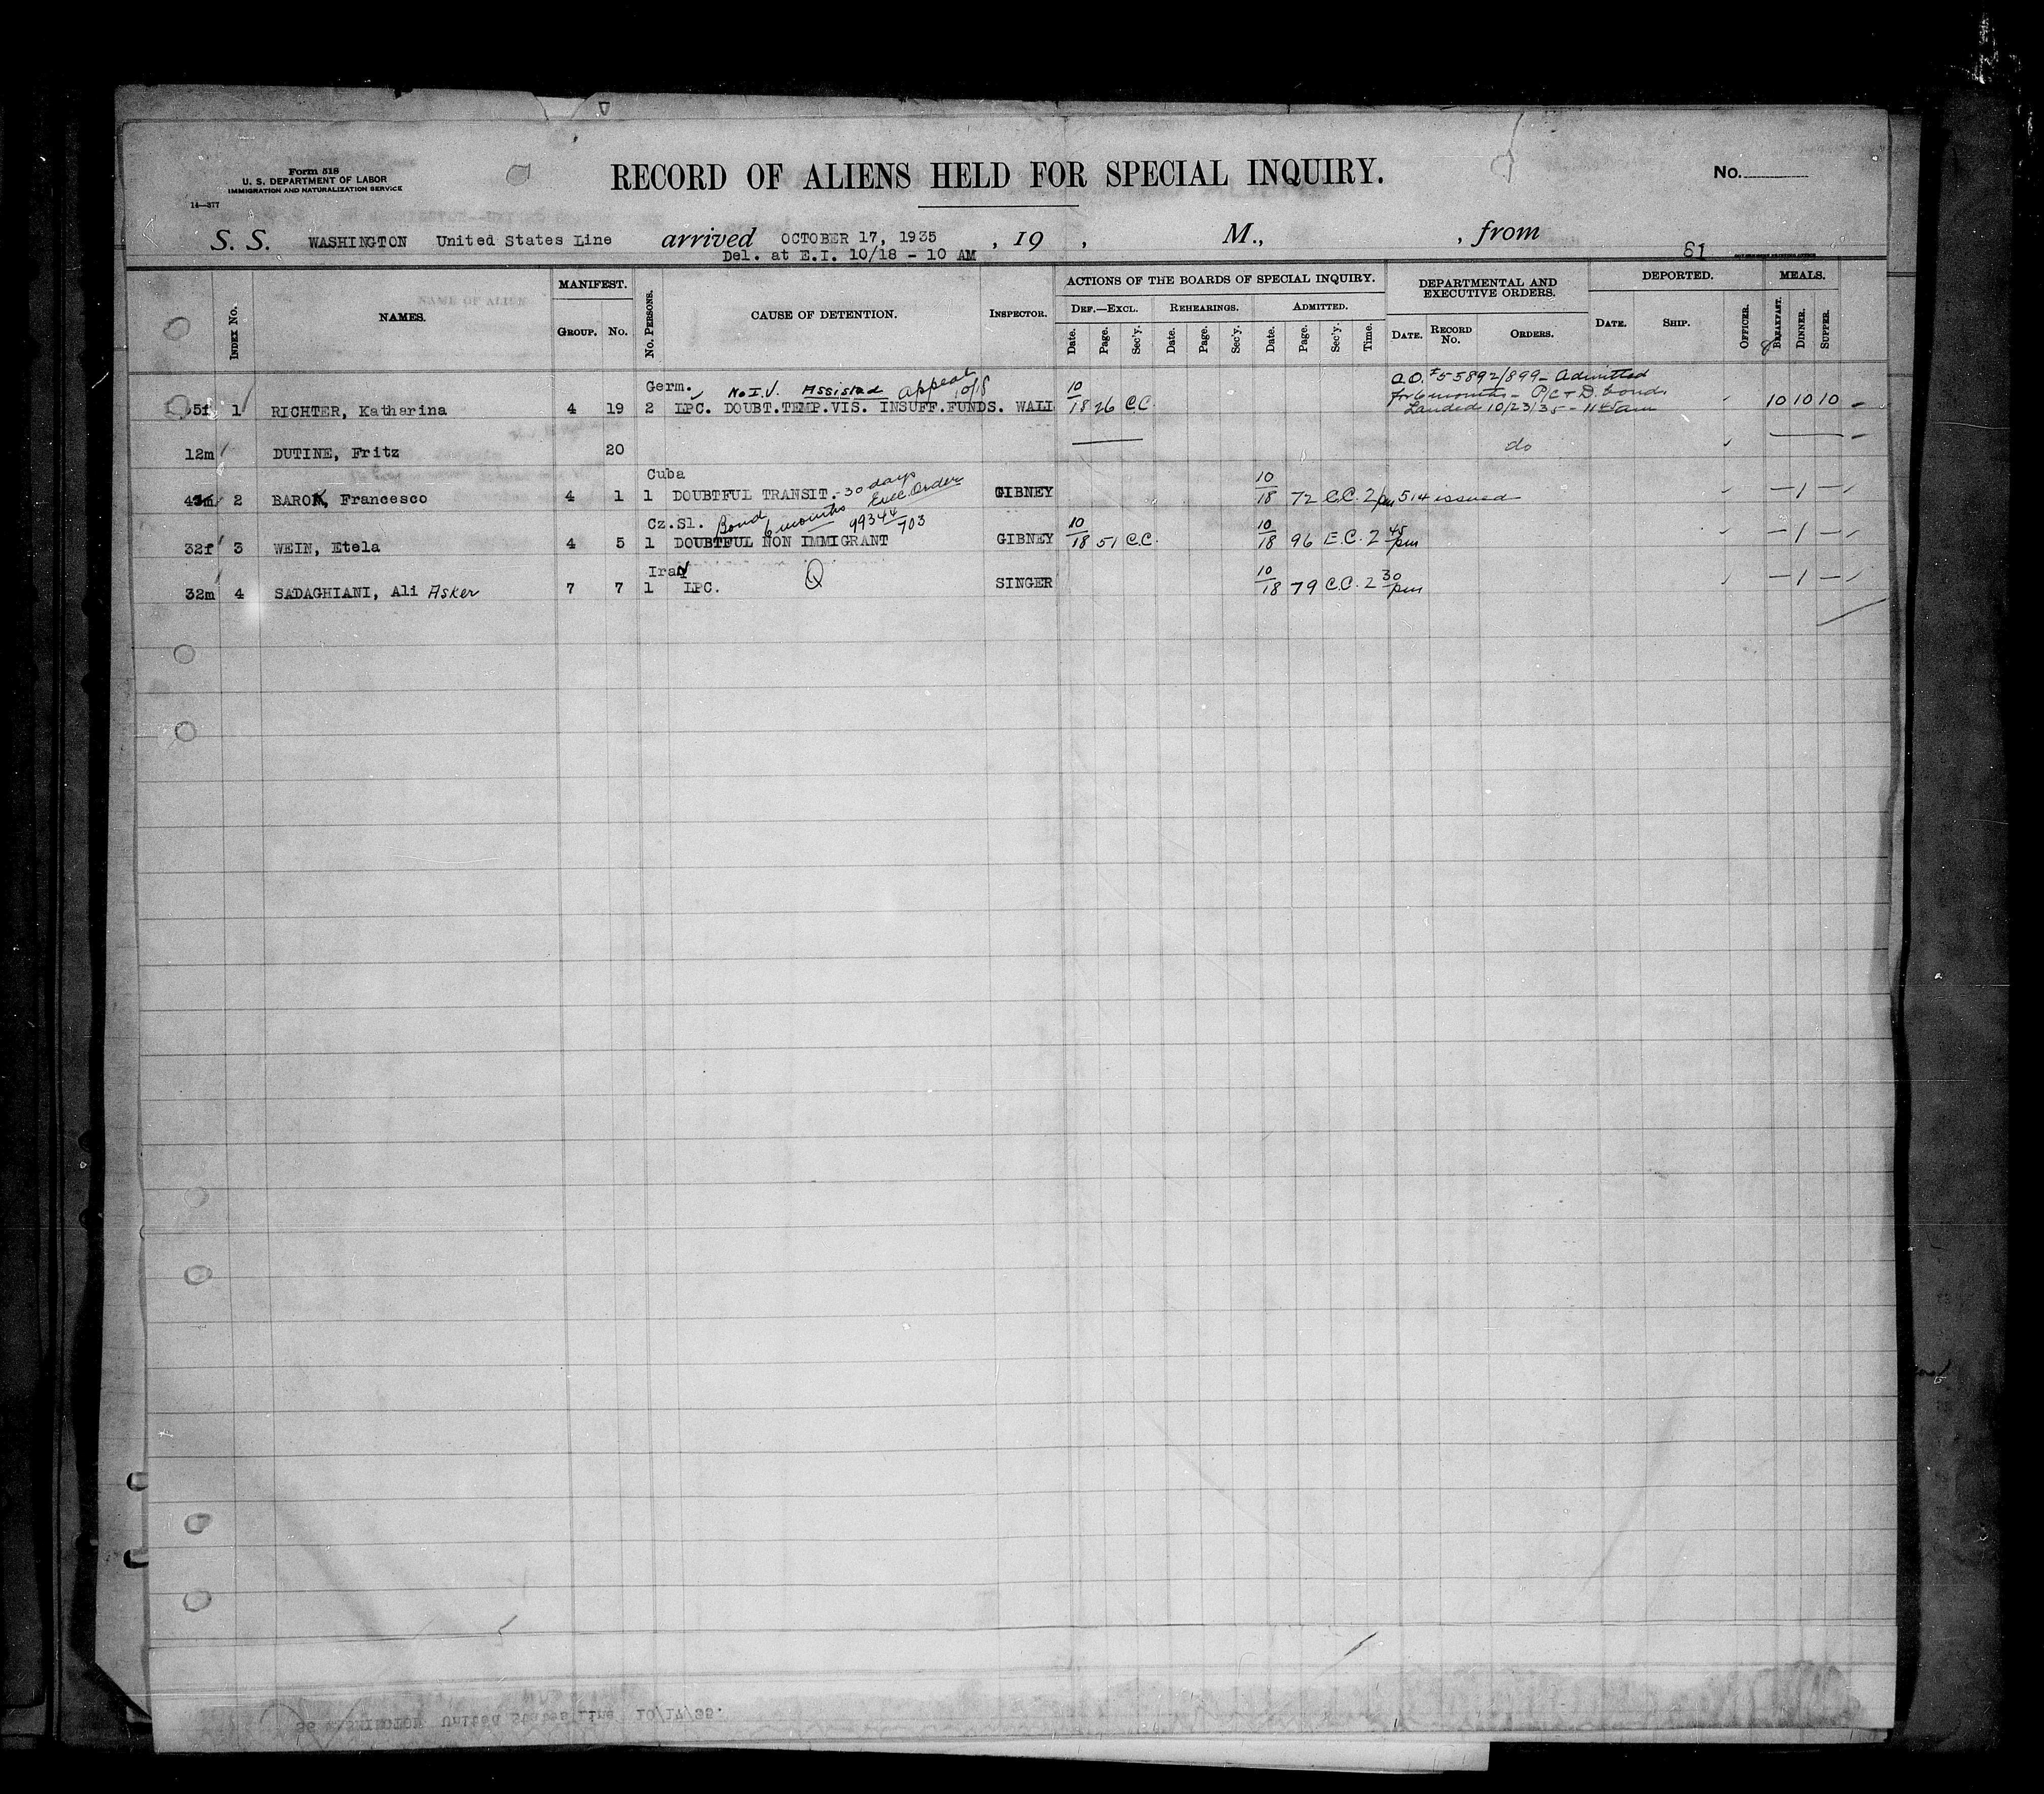 Form 518
U. S. DEPARTMENT OF LABOR
IMMIGRATION AND NATURALIZATION SERVICE
14—377
RECORD OF ALIENS HELD FOR SPECIAL INQUIRY.
No.
S. S. WASHINGTON United States Line arrived OCTOBER 17, 1935 , 19 , M., , from
Del. at E.I. 10/18 - 10 AM
81
INDEX No.
NAMES.
MANIFEST.
GROUP. No.
No. PERSONS.
CAUSE OF DETENTION.
INSPECTOR.
ACTIONS OF THE BOARDS OF SPECIAL INQUIRY.
DEF.—EXCL. REHEARINGS. ADMITTED.
Date. Page. Sec'y. Date. Page. Sec'y. Date. Page. Sec'y. Time.
DEPARTMENTAL AND EXECUTIVE ORDERS.
DATE. RECORD No. ORDERS.
DEPORTED.
DATE. SHIP.
OFFICER.
MEALS.
BREAKFAST. DINNER. SUPPER.
Germ. No I.V. Assisted Appeal 10/8
5f 1 RICHTER, Katharina 4 19 2 LPC. DOUBT.TEMP.VIS. INSUFF.FUNDS. WALL 10/18 26 C.C. 10 10 10
A.O. #55892/899 - Admitted
for 6 months - P/C + D. bonds
Landed 10/23/35 - 11 45 am
12m DUTINE, Fritz 20 do
Cuba
2 BARON, Francesco 4 1 1 DOUBTFUL TRANSIT. - 30 days Exec. Order GIBNEY 10/18 72 C.C. 2 pm 514 issued — 1 —
Cz.Sl. Bond 6 months 99344/703
32f 3 WEIN, Etela 4 5 1 DOUBTFUL NON IMMIGRANT GIBNEY 10/18 51 C.C. 10/18 96 E.C. 2 45 pm — 1 —
Iran
32m 4 SADAGHIANI, Ali Asker 7 7 1 LPC. Q SINGER 10/18 79 C.C. 2 30 pm — 1 —